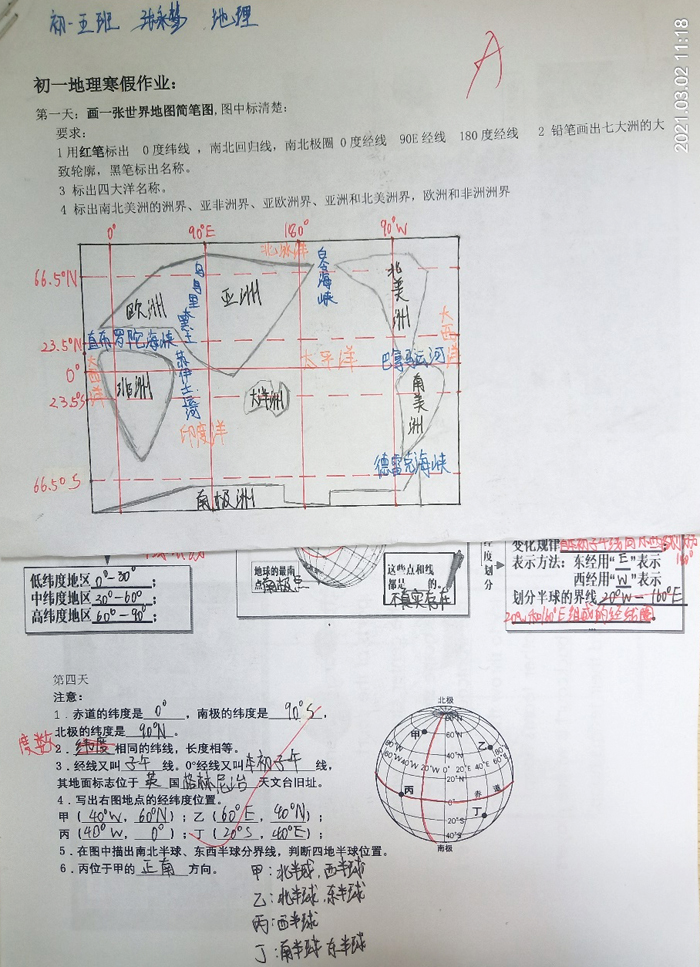 初一五班 地理
A
2021.03.02 11:18
初一地理寒假作业：
第一天：画一张世界地图简笔图,图中标清楚：
要求：
1 用红笔标出 0度纬线 ，南北回归线，南北极圈 0度经线 90E经线 180度经线 2 铅笔画出七大洲的大
致轮廓，黑笔标出名称。
3 标出四大洋名称。
4 标出南北美洲的洲界、亚非洲界、亚欧洲界、亚洲和北美洲界，欧洲和非洲洲界
0° 90°E 180° 90°W
北冰洋
66.5°N
乌拉尔山
亚洲
白令海峡
北美洲
欧洲
大西洋
23.5°N
直布罗陀海峡
苏伊士运河
太平洋
巴拿马运河
0°
大西洋
非洲
23.5°S
大洋洲
南美洲
印度洋
德雷克海峡
66.5°S
南极洲
低纬度地区0°-30°；
中纬度地区30°-60°；
高纬度地区60°-90°；
地球的最南
点南极点
这些点和线
都是 的。
不真实存在
度划分
变化规律
180°
表示方法：东经用“E”表示
西经用“W”表示
划分半球的界线20°W-160°E
20°W和160°E组成的经线圈。
第四天
注意：
1．赤道的纬度是0°，南极的纬度是90°S，
北极的纬度是90°N。
度数
2．纬度相同的纬线，长度相等。
3．经线又叫子午线。0°经线又叫本初子午线，
其地面标志位于英国格林尼治天文台旧址。
4．写出右图地点的经纬度位置。
甲（40°W，60°N）；乙（60°E，40°N）；
丙（40°W，0°）；丁（20°S，40°E）；
5．在图中描出南北半球、东西半球分界线，判断四地半球位置。
6．丙位于甲的正南方向。
甲：北半球，西半球
乙：北半球，东半球
丙：西半球
丁：南半球 东半球
北极
80°N
60°N
甲
乙
40°N
80°W 60°W 40°W 20°W 0° 20°E 40°E 60°E
20°N
丙
0°
赤道
丁
20°S
40°S
南极